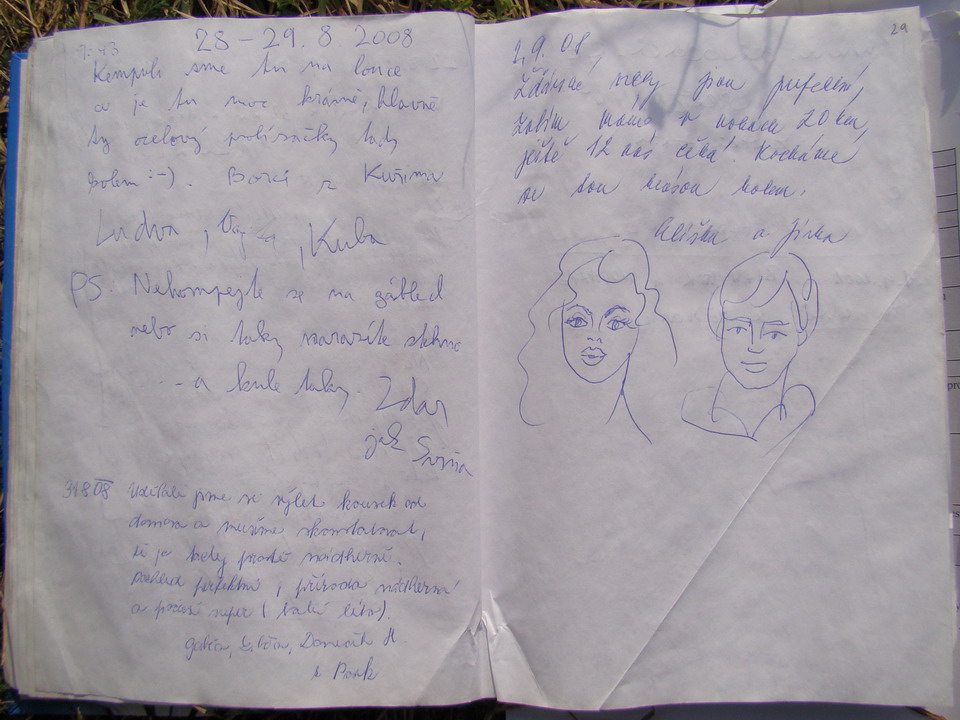 9:43
28–29.8.2008
Kempuli sme tu na louce
a je tu moc krásně, hlavně
ty ocelový tady
kolem :-). Borci z Kuřima
Ludva, , Kuba
PS. Nekompejte se na
nebo si taky narazíte stehno
--a kule taky. Zdar
jak Svina
31.8.08 Udělali jsme si výlet kousek od
domova a musíme skonstatovat,
že je tady prostě nádherně.
perfektní, příroda nádherná
a počasí super (babí léto).
Gábča, H.
& Bork
29
2.9.08
jsou perfektní,
máme v nohách 20 km,
ještě 12 nás čeká. Kocháme
se tou krásou kolem.
Eliška a Jirka